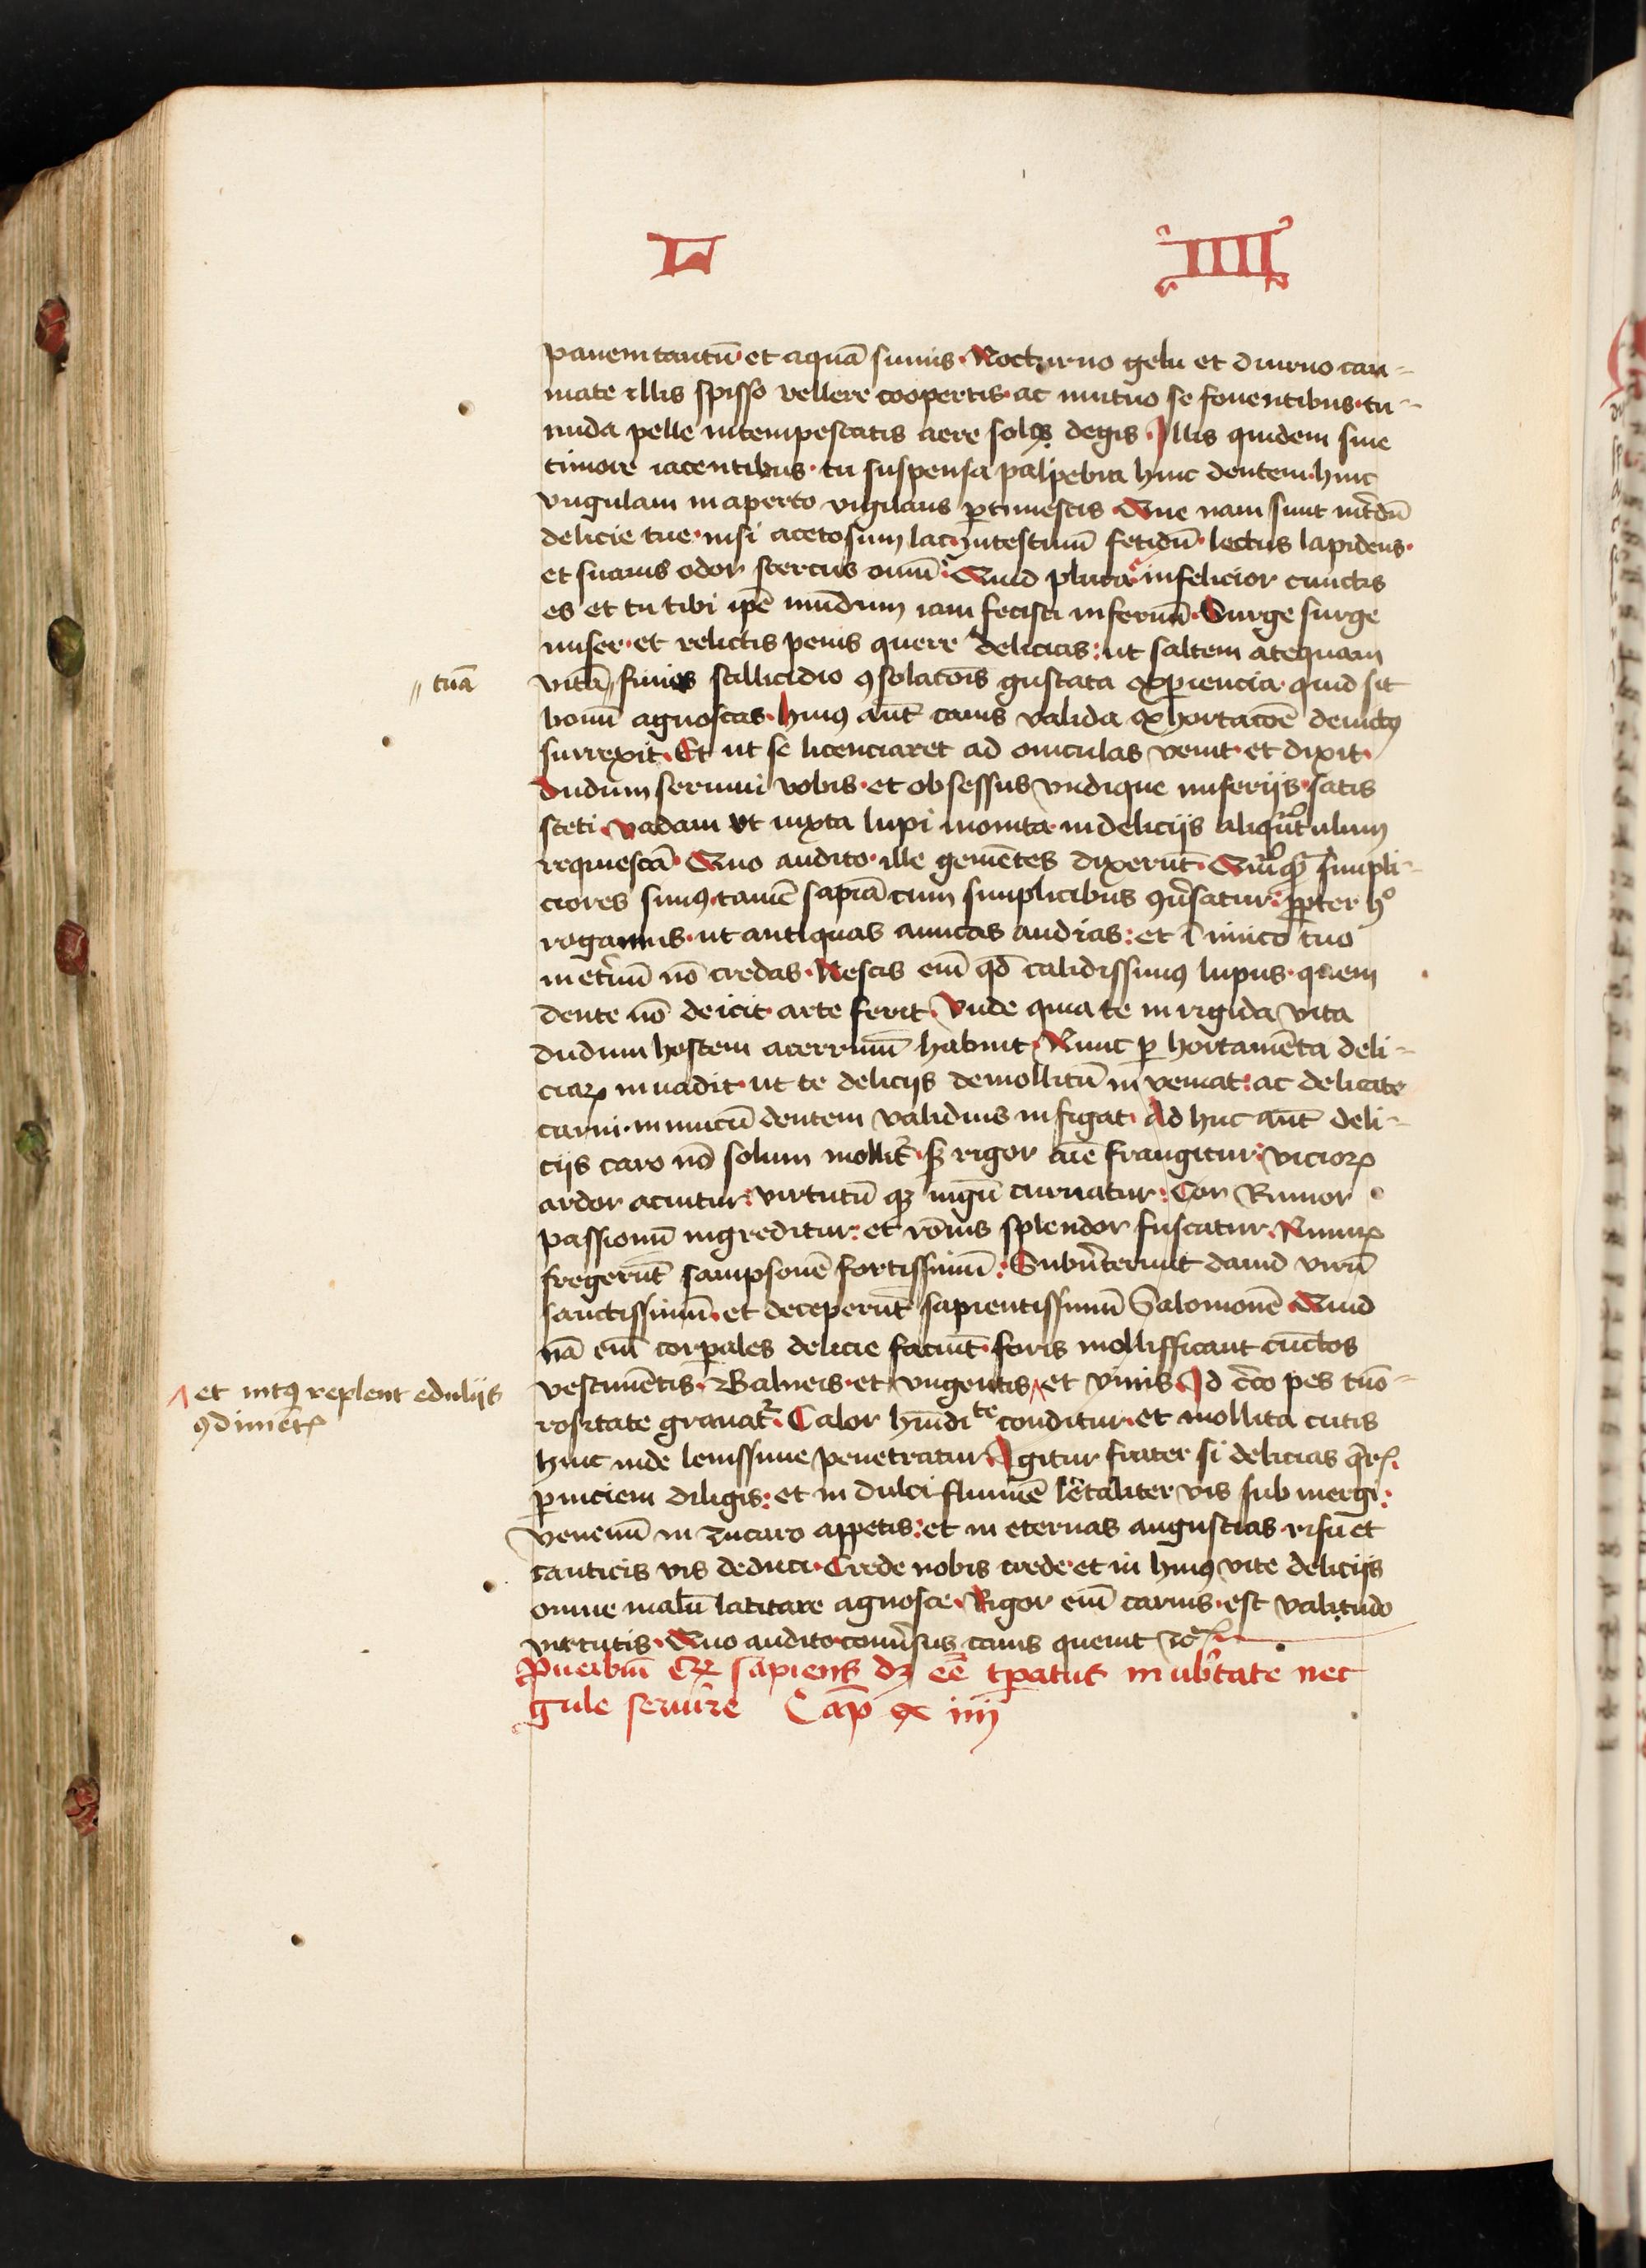 L IIII
panem tantū et aquā sumis. Nocturno gelu et diurno cau-
mate illis spisso vellere coopertis ac mutuo se fouentibus tu
nuda pelle intemperatis aere solus degis. Illis quidem sine
timore iacentibus. tu suspensa palpebra hinc dentem. hinc
vngulam in aperto vigilans ꝑtimescis. Que nam sunt int̄dū
delicie tue. nisi acetosum lac. intestinū fetidū. lectus lapideus.
et suauis odor stercus ouiū. Quid plura. infelicior cunctis
es et tu tibi ip̄e mūdum iam fecisti infernū. Surge surge
miser. et relictis penis quere delicias: ut saltem anteq̄uam
// tuā
vitā // finies stillicidio ꝯsolatōis gustata exꝑiencia quid sit
bonū agnoscas. huiꝰ aūt canis valida exhortacōe deuictꝰ
surrexit. Et ut se licenciaret ad ouiculas venit. et dixit.
Dudum seruiui vobis. et obsessus vndique miseriis. satis
steti. vadam ut iuxta lupi monita in deliciis aliqn̄tulum
requiescā. Quo audito. ille gemētes dixerūt. Quīqꝫ simpli-
ciores simꝰ. tamē sapiā cum simplicibus ꝯūsatur. ꝓpter hͦ
rogamus. ut antiquas amicas audias: et īimico tuo
inet̄nū nō credas. Nescis em̄ qd̄ calidissimꝰ lupus. quem
dente nō deicit. arte ferit. Vnde quia te in rigida vita
dudum hostem acerrimū habuit. Nunc ꝑ hortamēta deli-
ciaꝝ inuadit. ut te deliciis demollitū inveniat: ac delicate
carni. inimicū dentem validius infigat. Ad huc aūt deli-
ciis caro nō solum mollit̄. sꝫ rigor aīe frangitur: vicioꝝ
ardor acuitur: virtutū qꝫ ingū curuatur: Cor Rumor
passionū ingreditur: et rōnis splendor fuscatur. Nimiꝝ
fregerūt sampsonē fortissimū: Subūterunt dauid virū
sanctissimū. et deceperūt sapientissimū Salomonē. Quid
nā em̄ corꝑales delicie faciūt. foris mollifficant cūctos
ʌ et intꝰ replent eduliis
ꝯdimētꝭ
vestimētis. Balneis. et vngentis ʌ et vinis. Id c̄co pes tuō-
rositate grauat̄. Calor hūidite conditur. et mollita cutis
hinc inde lenissime penetratur. Igitur frater si delicias q̄rꝭ.
ꝑniciem diligis: et in dulci flumīe letaliter vis sub mergi:
venenū in zucaro appetis: et in eternas angustias. risu et
canticis vis deduci. Crede nobis crede. et in huiꝰ vite deliciis
omne malū latitare agnosce. Rigor em̄ carnis. est valitudo
virtutis. Quo audito conūsus canis queuit zc̄
Puerbiū Cꝝ sapiens dꝫ eē tꝑatus in ub̄tate nec
gule seruire Cap̄ x iiij